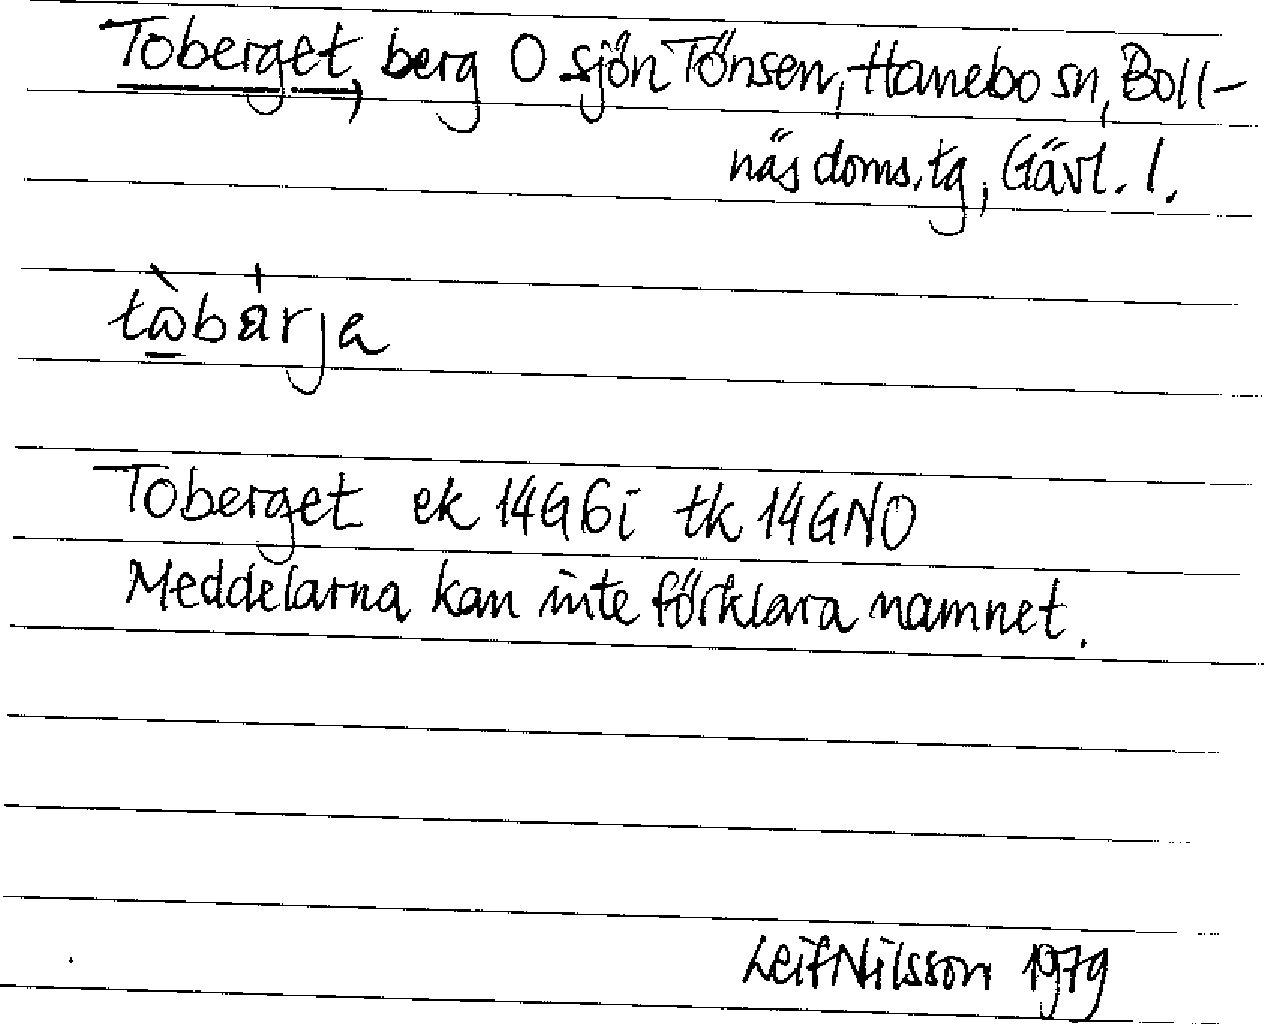 Toberget, berg O sjön Tönsen, Hanebo sn, Boll-
näs doms.tg, Gävl. l.
tὼbȧrja
Toberget ek 14G6i tk 14GNO
Meddelarna kan inte förklara namnet.
Leif Nilsson 1979